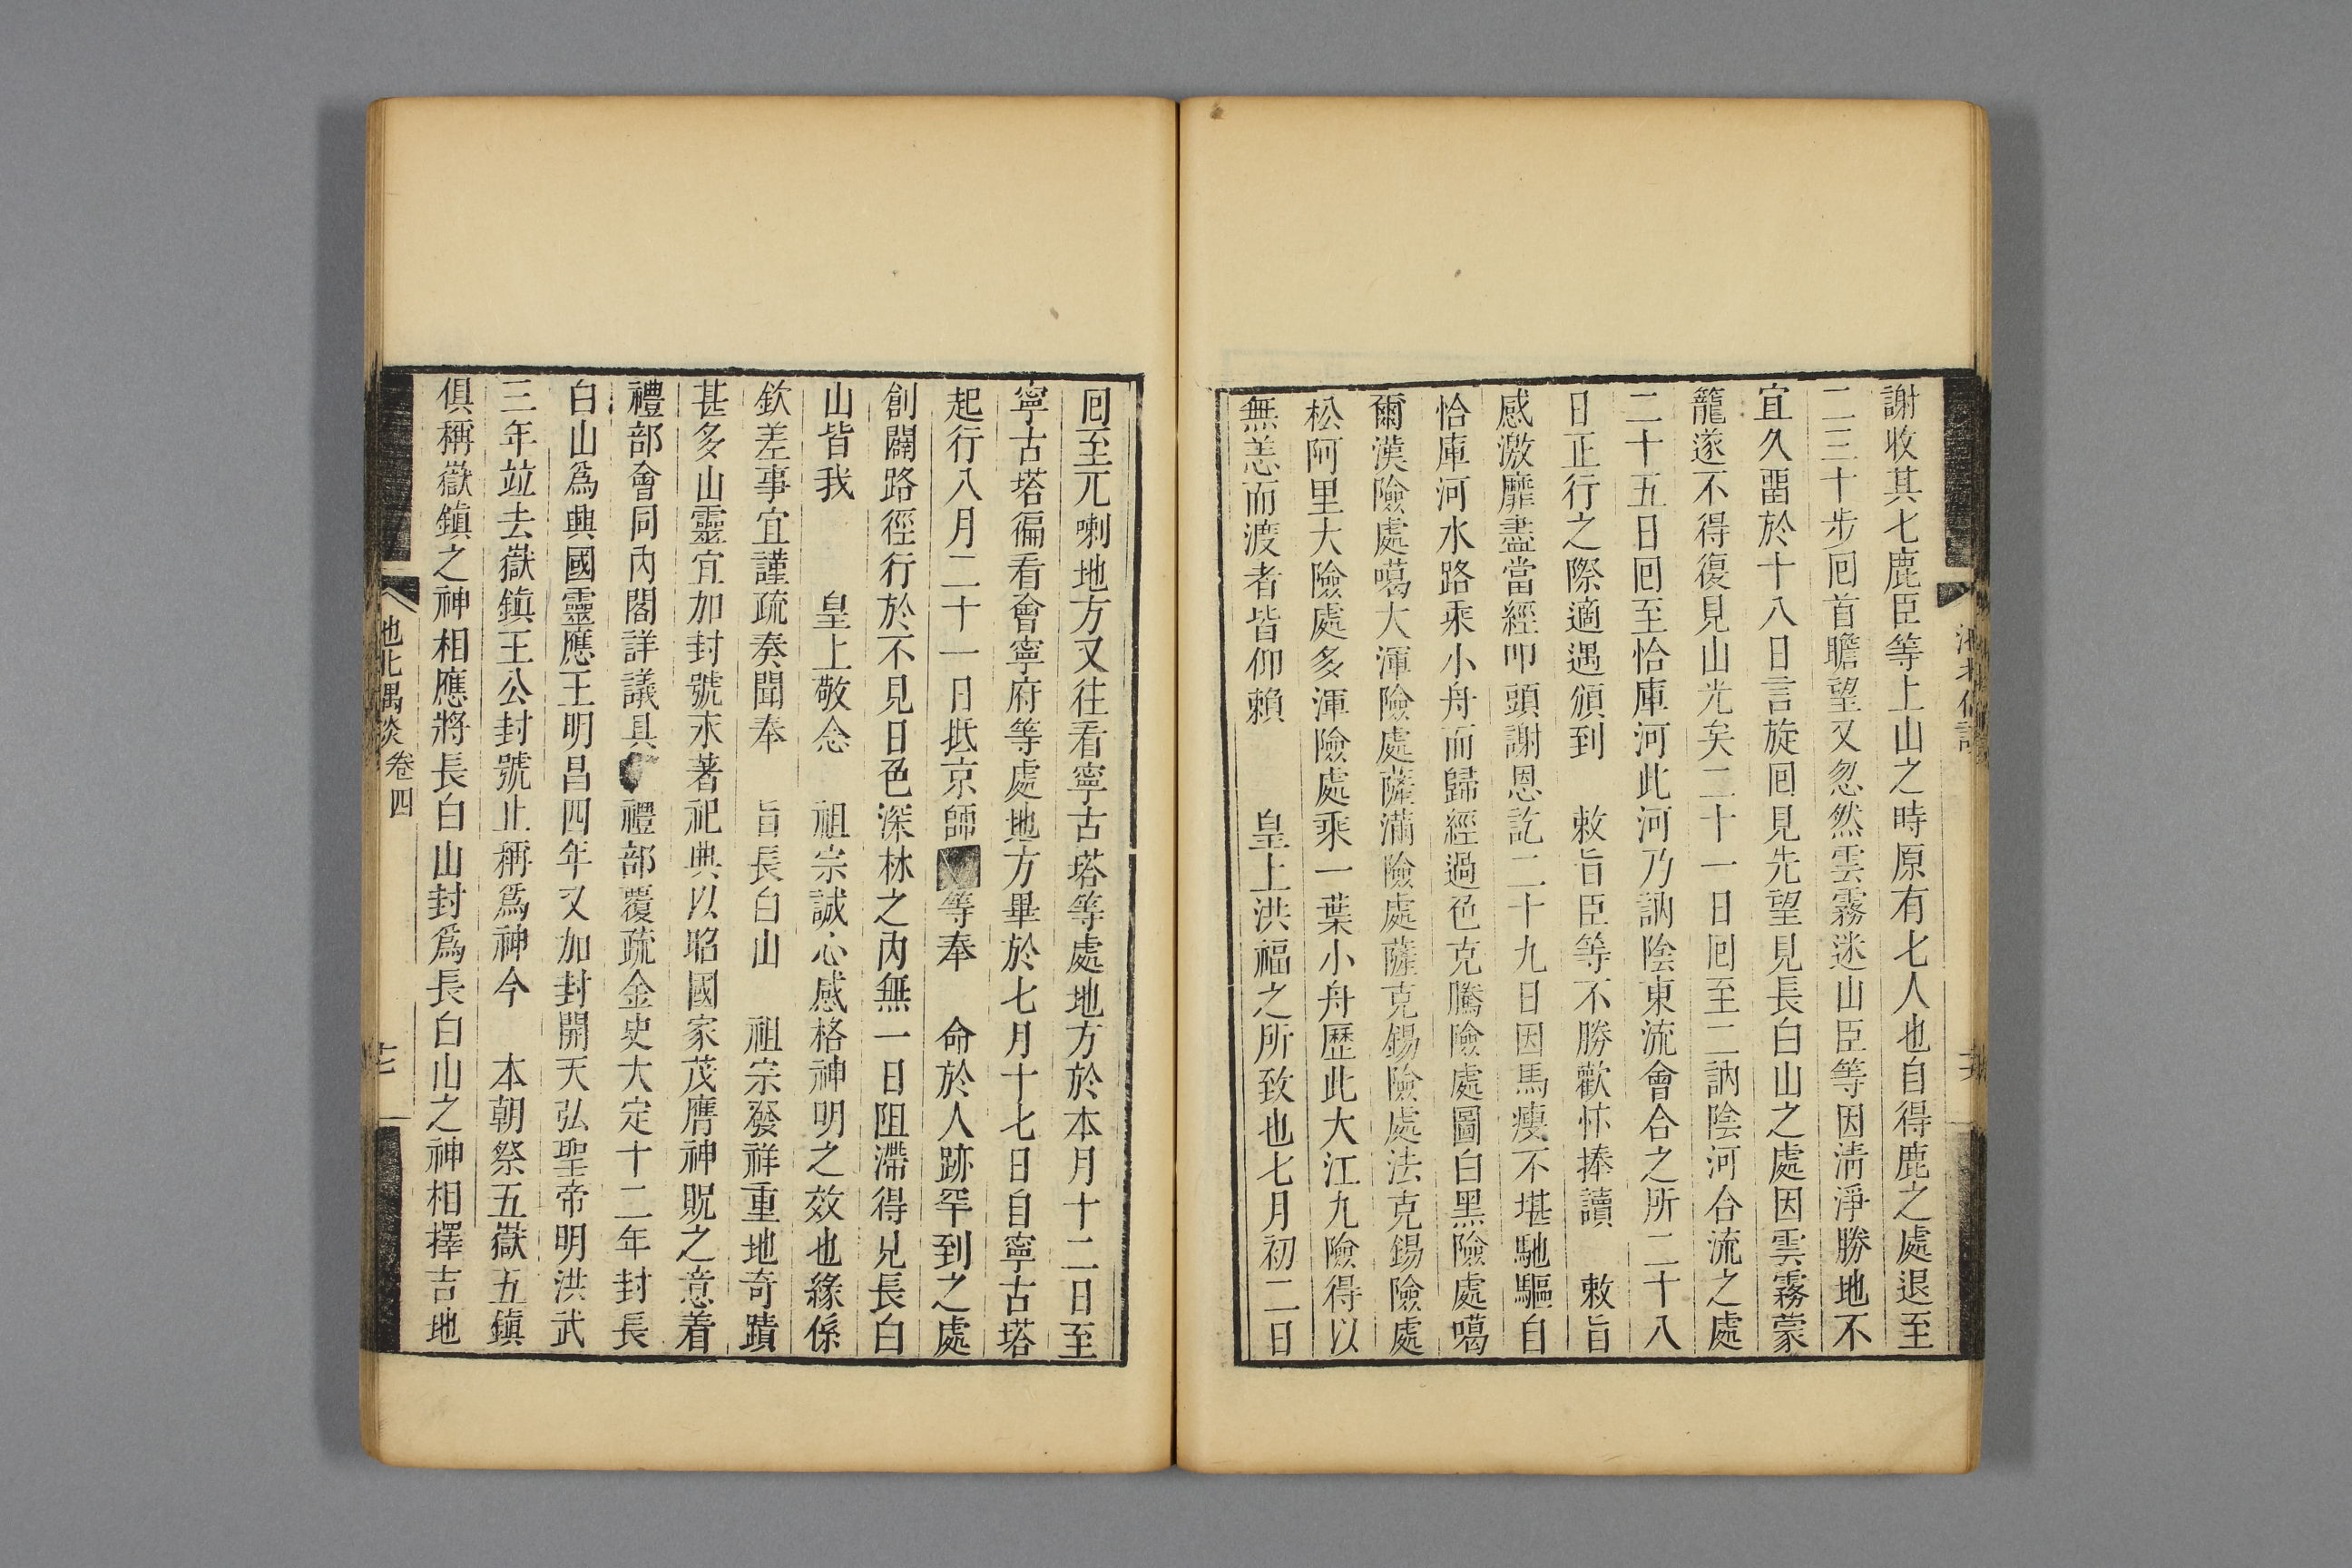 謝收其七鹿臣等上山之時原有七人也自得鹿之處退至
二三十步囘首瞻望又忽然雲霧迷山臣等因清淨勝地不
宜久畱於十八日言旋囘見先望見長白山之處因雲霧蒙
籠遂不得復見山光矣二十一日囘至二訥陰河合流之處
二十五日囘至恰庫河此河乃訥陰東流會合之所二十八
日正行之際適遇頒到 敕旨臣等不勝歡忭捧讀 敕旨
感激靡盡當經叩頭謝恩訖二十九日因馬瘦不堪馳驅自
恰庫河水路乘小舟而歸經過色克騰險處圖白黑險處噶
爾漢險處噶大渾險處薩滿險處薩克錫險處法克錫險處
松阿里大險處多渾險處乘一葉小舟歷此大江九險得以
無恙而渡者皆仰賴 皇上洪福之所致也七月初二日
囘至兀喇地方又往看寧古塔等處地方於本月十二日至
寧古塔徧看會寧府等處地方畢於七月十七日自寧古塔
起行八月二十一日抵京師 等奉 命於人跡罕到之處
創闢路徑行於不見日色深林之內無一日阻滯得見長白
山皆我 皇上敬念 祖宗誠心感格神明之效也緣係
欽差事宜謹疏奏聞奉 旨長白山 祖宗發祥重地奇蹟
甚多山靈宜加封號永著祀典以昭國家茂膺神貺之意着
禮部會同內閣詳議具 禮部覆疏金史大定十二年封長
白山爲興國靈應王明昌四年又加封開天弘聖帝明洪武
三年竝去嶽鎮王公封號止稱爲神今 本朝祭五嶽五鎮
俱稱嶽鎮之神相應將長白山封爲長白山之神相擇吉地
池北偶談 卷四